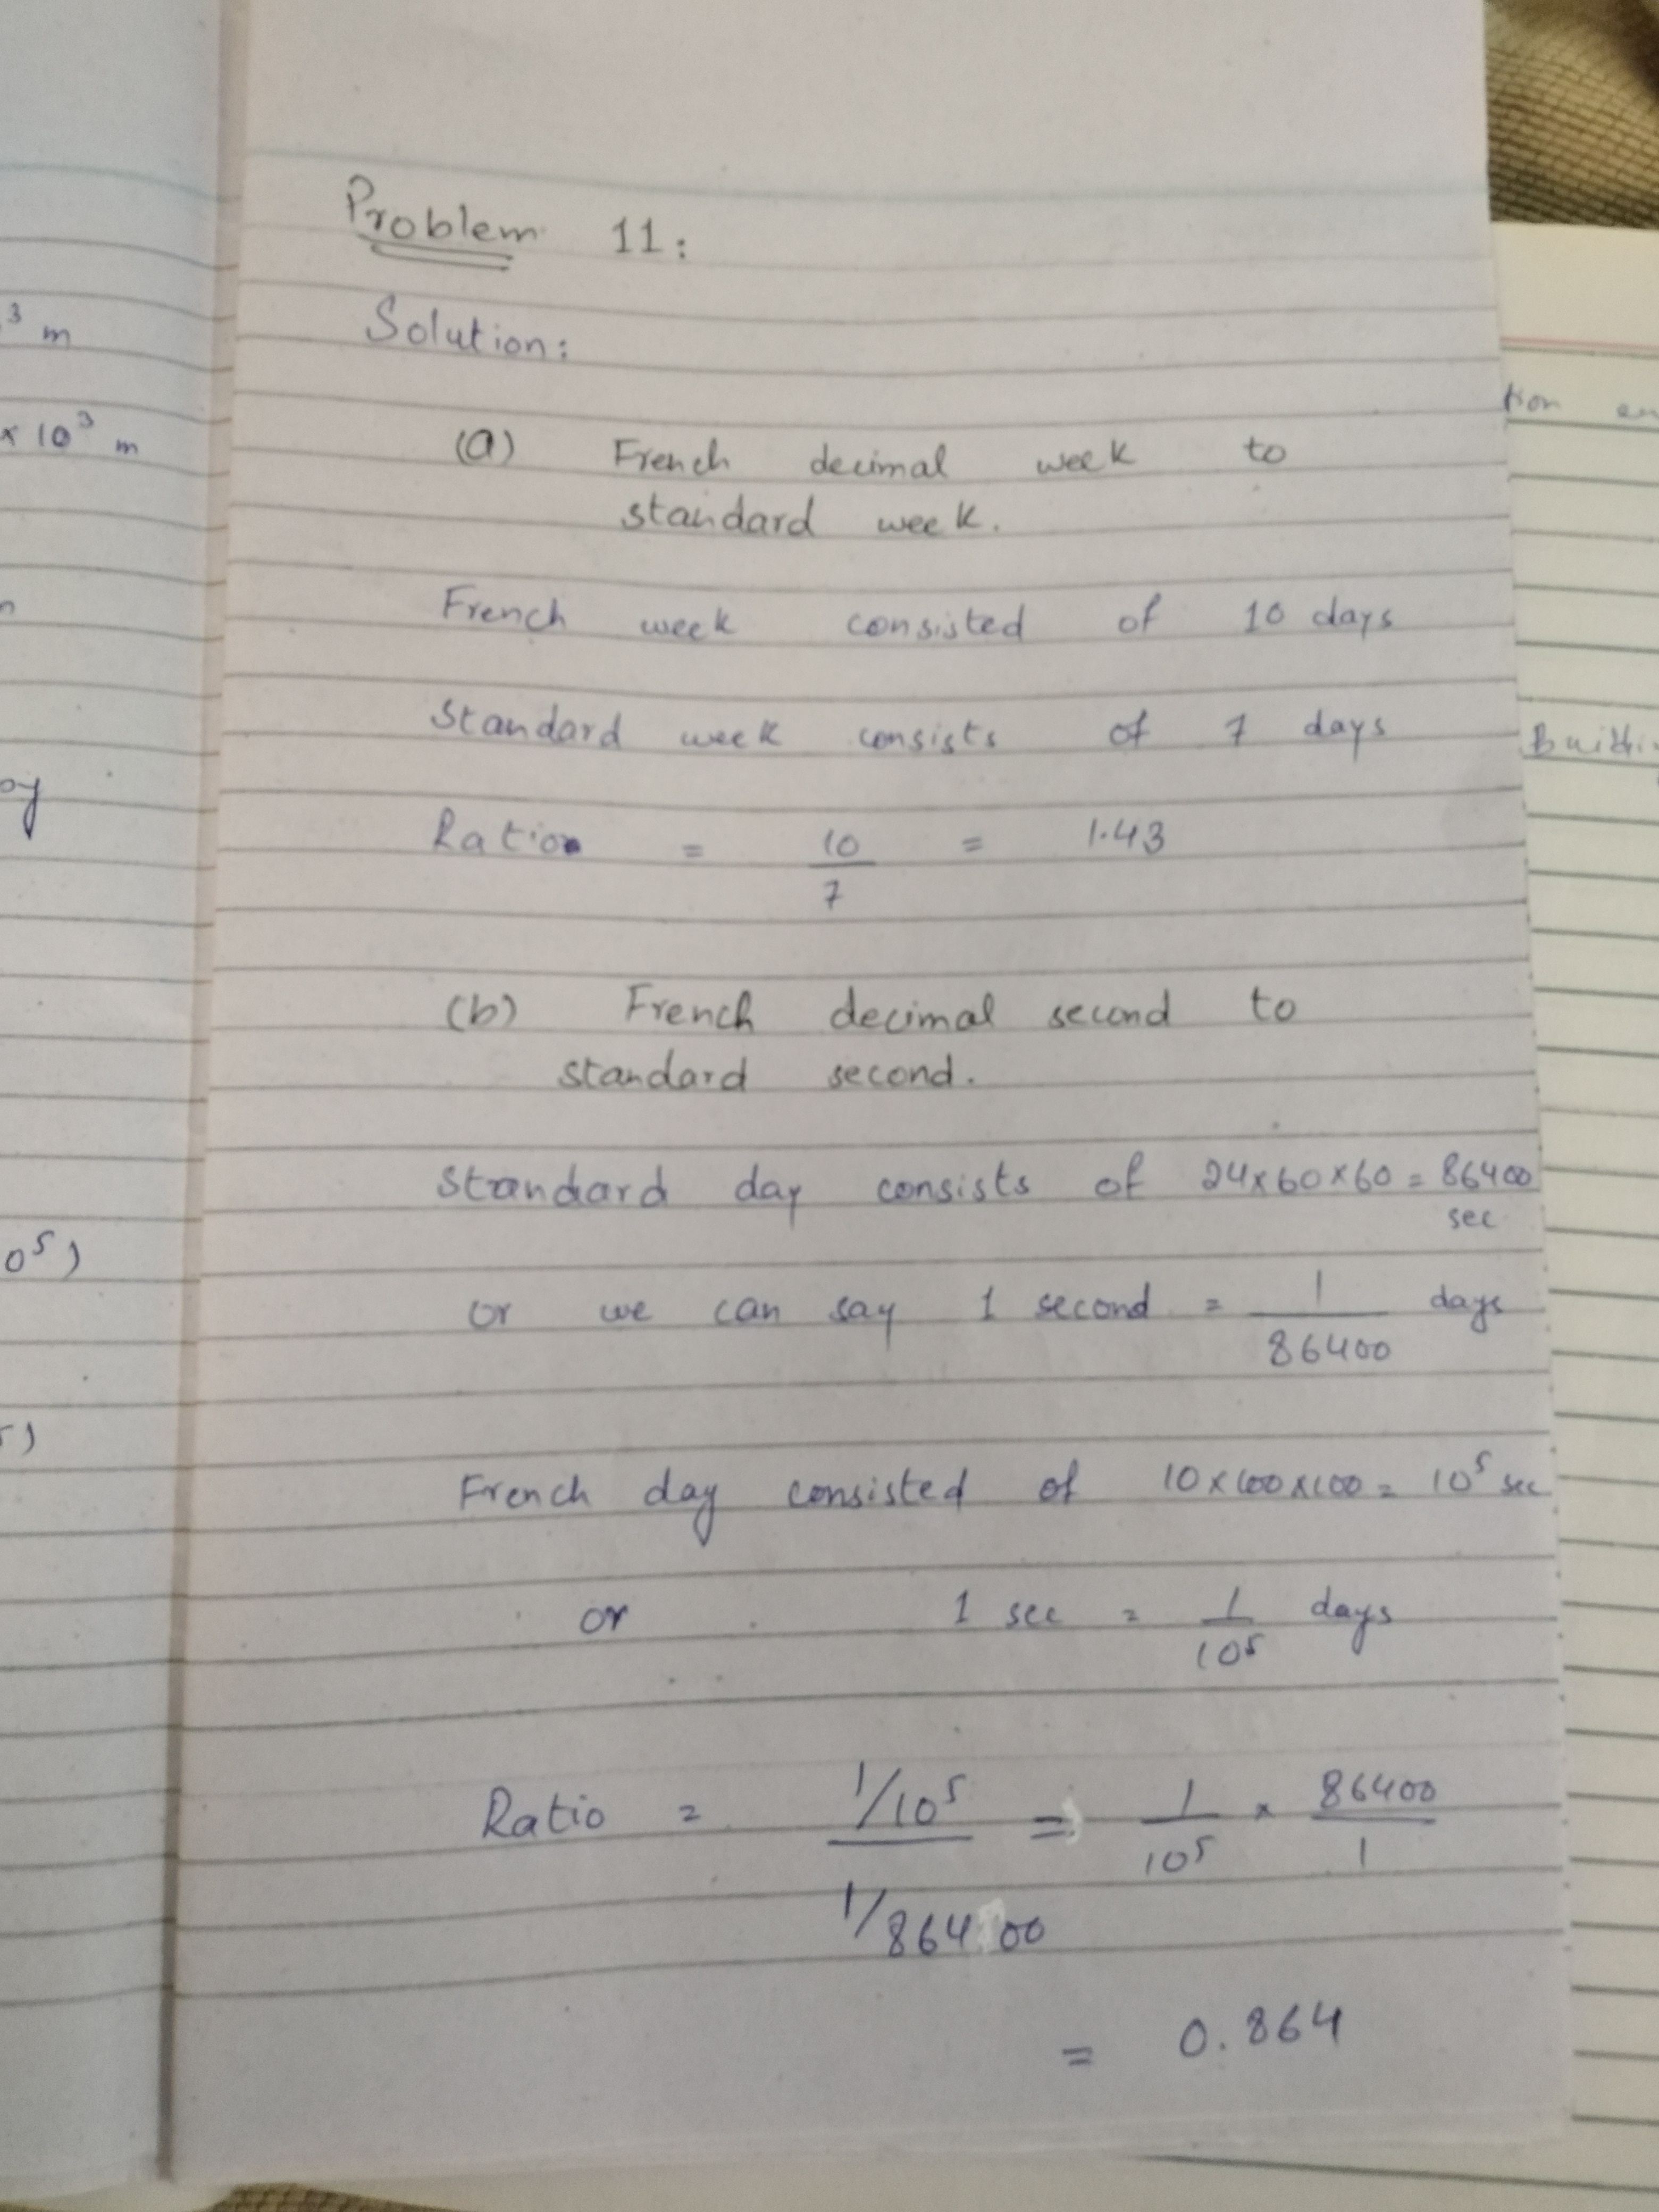 Problem 11:
Solution:
(a) French decimal week to
standard week.
French week consisted of 10 days
Standard week consists of 7 days
Ratio = 10/7 = 1.43
(b) French decimal second to
standard second.
Standard day consists of 24x60x60 = 86400
sec
or we can say 1 second = 1/86400 days
French day consisted of 10x100x100 = 10⁵ sec
or 1 sec = 1/10⁵ days
Ratio = (1/10⁵)/(1/86400) => 1/10⁵ x 86400/1
= 0.864
3 m
x 10³ m
0⁵)
tion